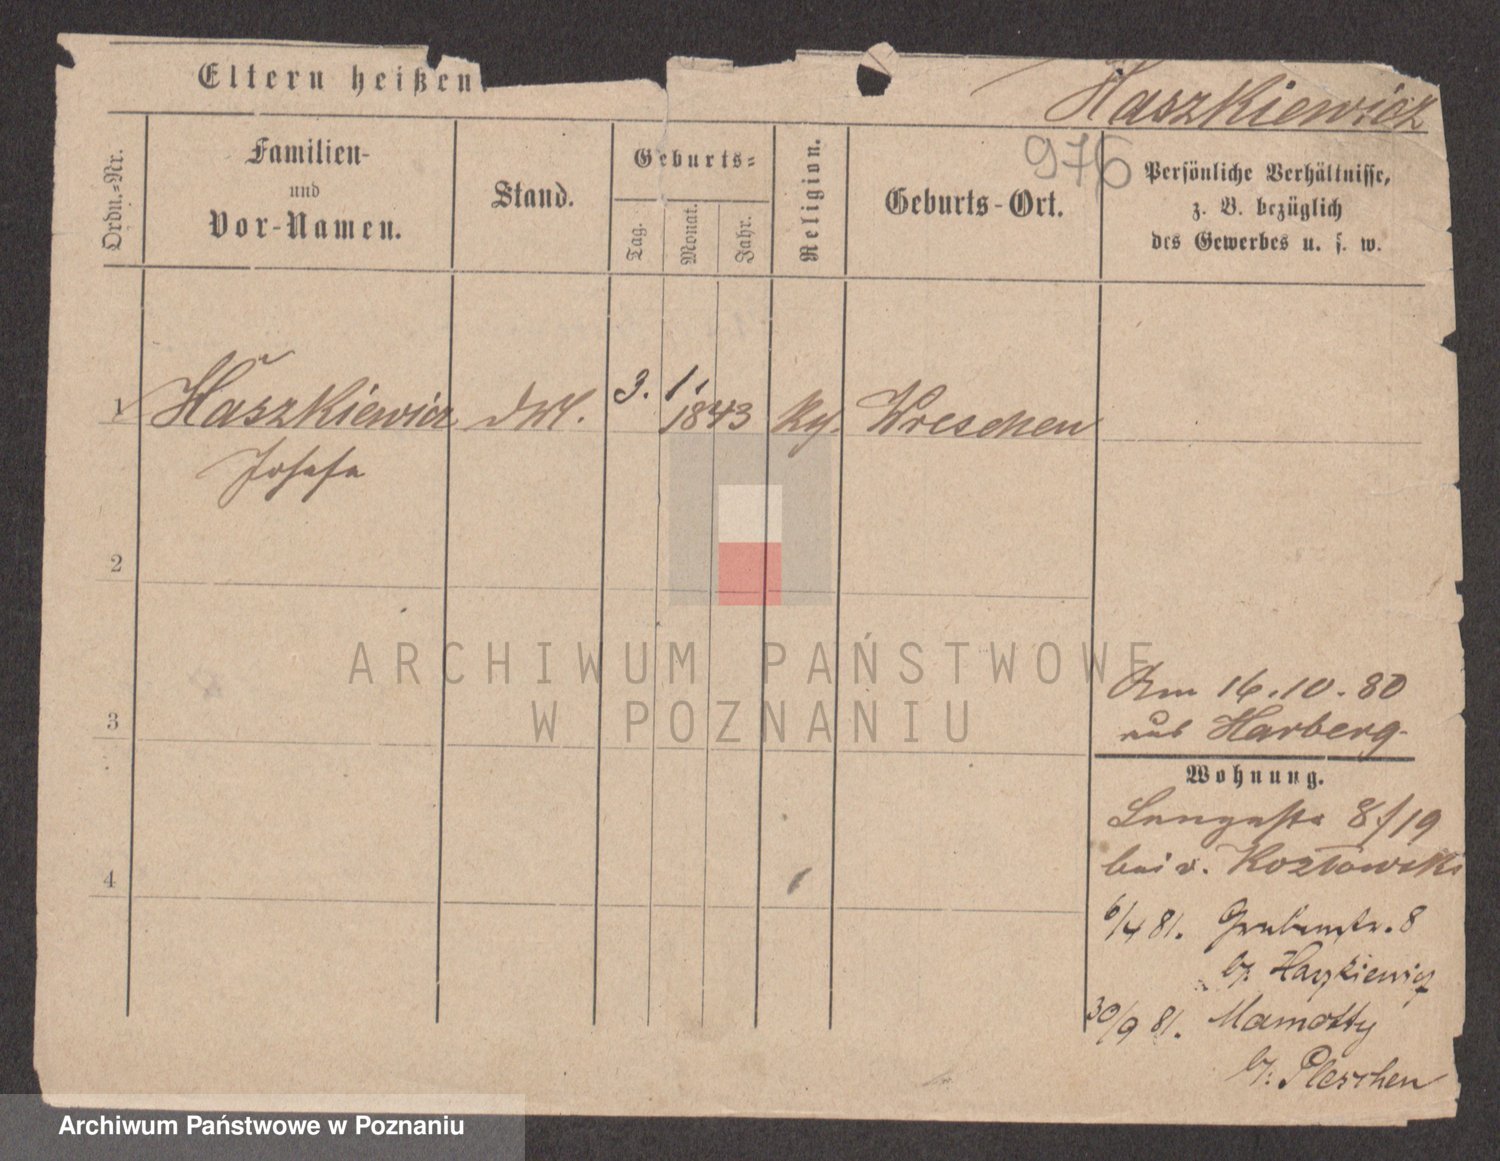 Eltern heißen
Haszkiewicz
976
Ordn.-Nr.
Familien-
und
Vor-Namen.
Stand.
Geburts-
Tag.
Monat.
Jahr.
Religion.
Geburts-Ort.
Persönliche Verhältnisse,
z. B. bezüglich
des Gewerbes u. s. w.
1 Haszkiewicz 3. 1. 1843 Wreschen
Josefa
2
3
4
Am 16.10.80
aus Harberg.
Wohnung.
Langestr 8/19
bei v. Kozlowski
6/4 81. Grabenstr. 8
b/. Haszkiewicz
30/9 81. Mamotty
b/. Pleschen
ARCHIWUM PAŃSTWOWE
W POZNANIU
Archiwum Państwowe w Poznaniu